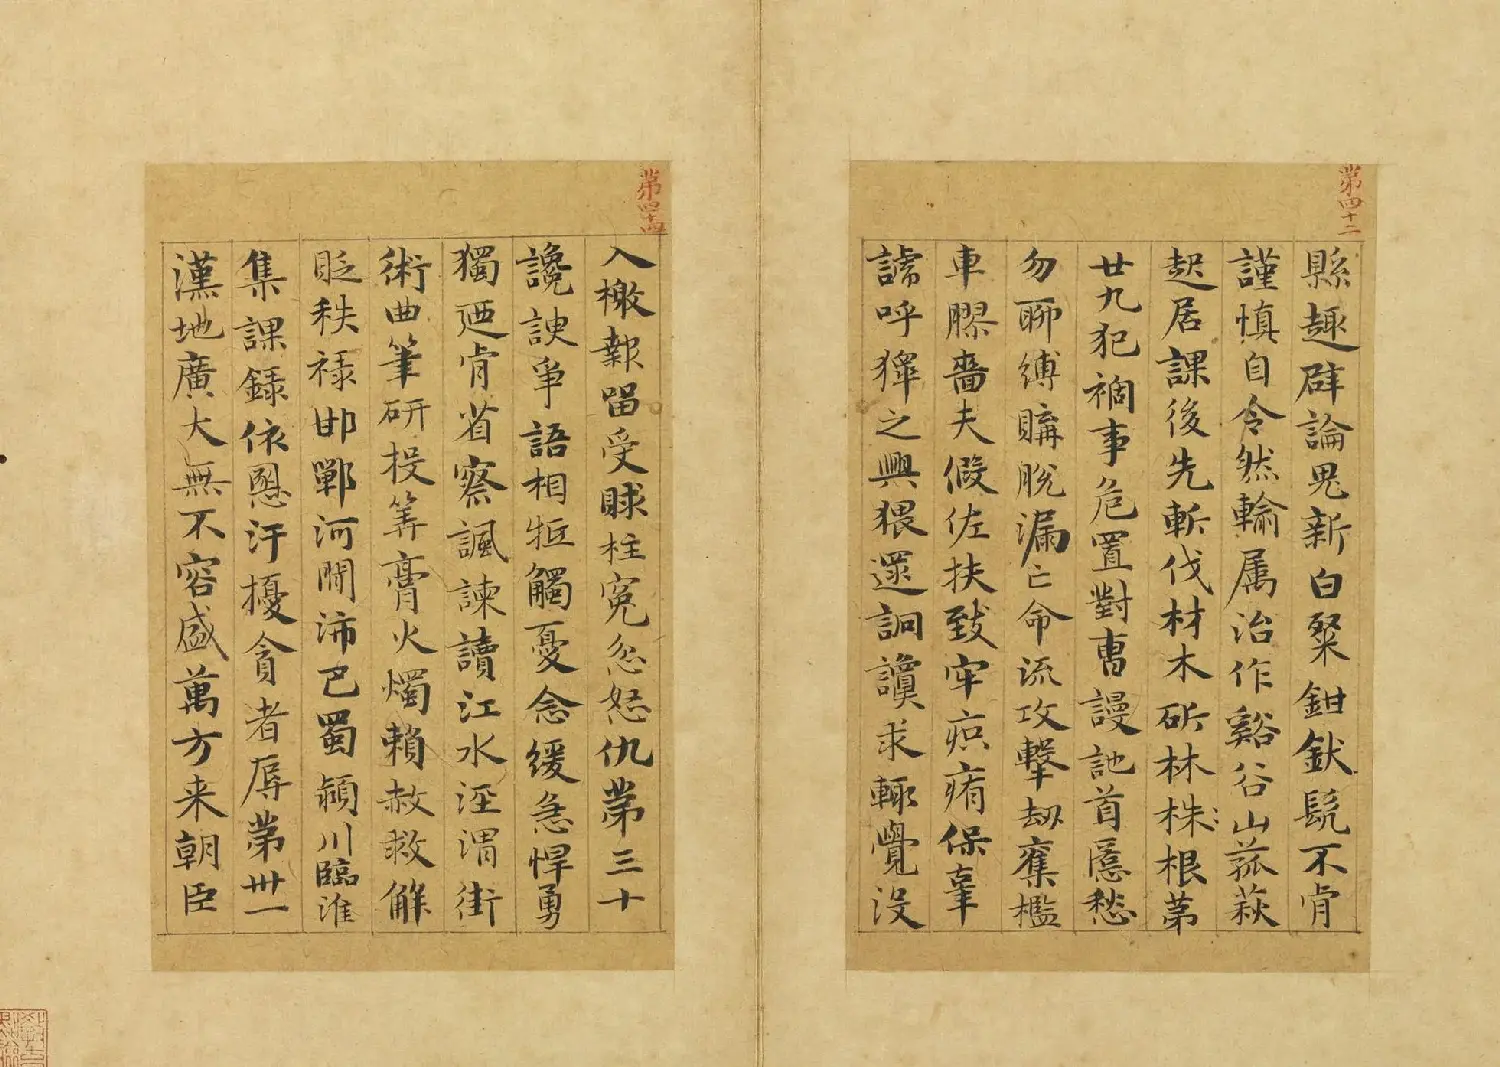 第四十二
縣趣辟論鬼新白粲鉗釱髡不肯
謹慎自令然輸属治作谿谷山菰萩
起居課後先斬伐材木斫林株根第
廿九犯禍事危置對曹謾訑首匿愁
勿聊縛購脱漏亡命流攻擊劫奪檻
車膠嗇夫假佐扶致牢疻痏保辜
謕呼獋之興猥逯詗讂求輙覺没
第四十四
入檄報留受賕柱冤忿怒仇第三十
讒諛爭語相牴觸憂念緩急悍勇
獨廼肯省察諷諫讀江水涇渭街
術曲筆研投筭膏火燭賴赦救解
貶秩禄邯鄲河間沛巴蜀潁川臨淮
集課録依汙擾貪者辱第卅一
漢地廣大無不容盛萬方来朝臣